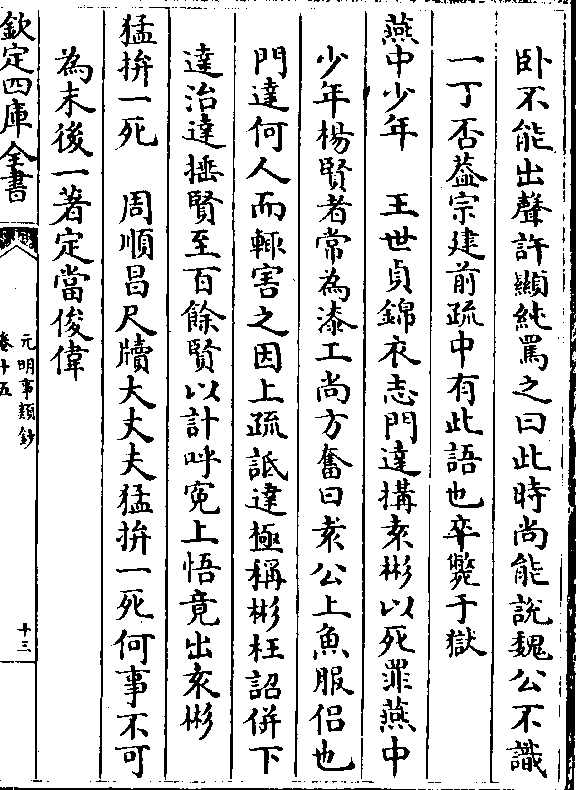 卧不能出聲許顯純罵之曰此時尚能說魏公不識
一丁否葢宗建前疏中有此語也卒斃于獄
燕中少年　王世貞錦衣志門達搆袁彬以死罪燕中
少年楊賢者常為漆工尚方奮曰袁公上魚服侣也
門達何人而輙害之因上疏詆達極稱彬枉詔併下
達治達捶賢至百餘賢以計呼寃上悟竟出袁彬
猛拚一死　周順昌尺牘大丈夫猛拚一死何事不可
為末後一著定當俊偉
欽定四庫全書
元明事類鈔
卷十五
十三